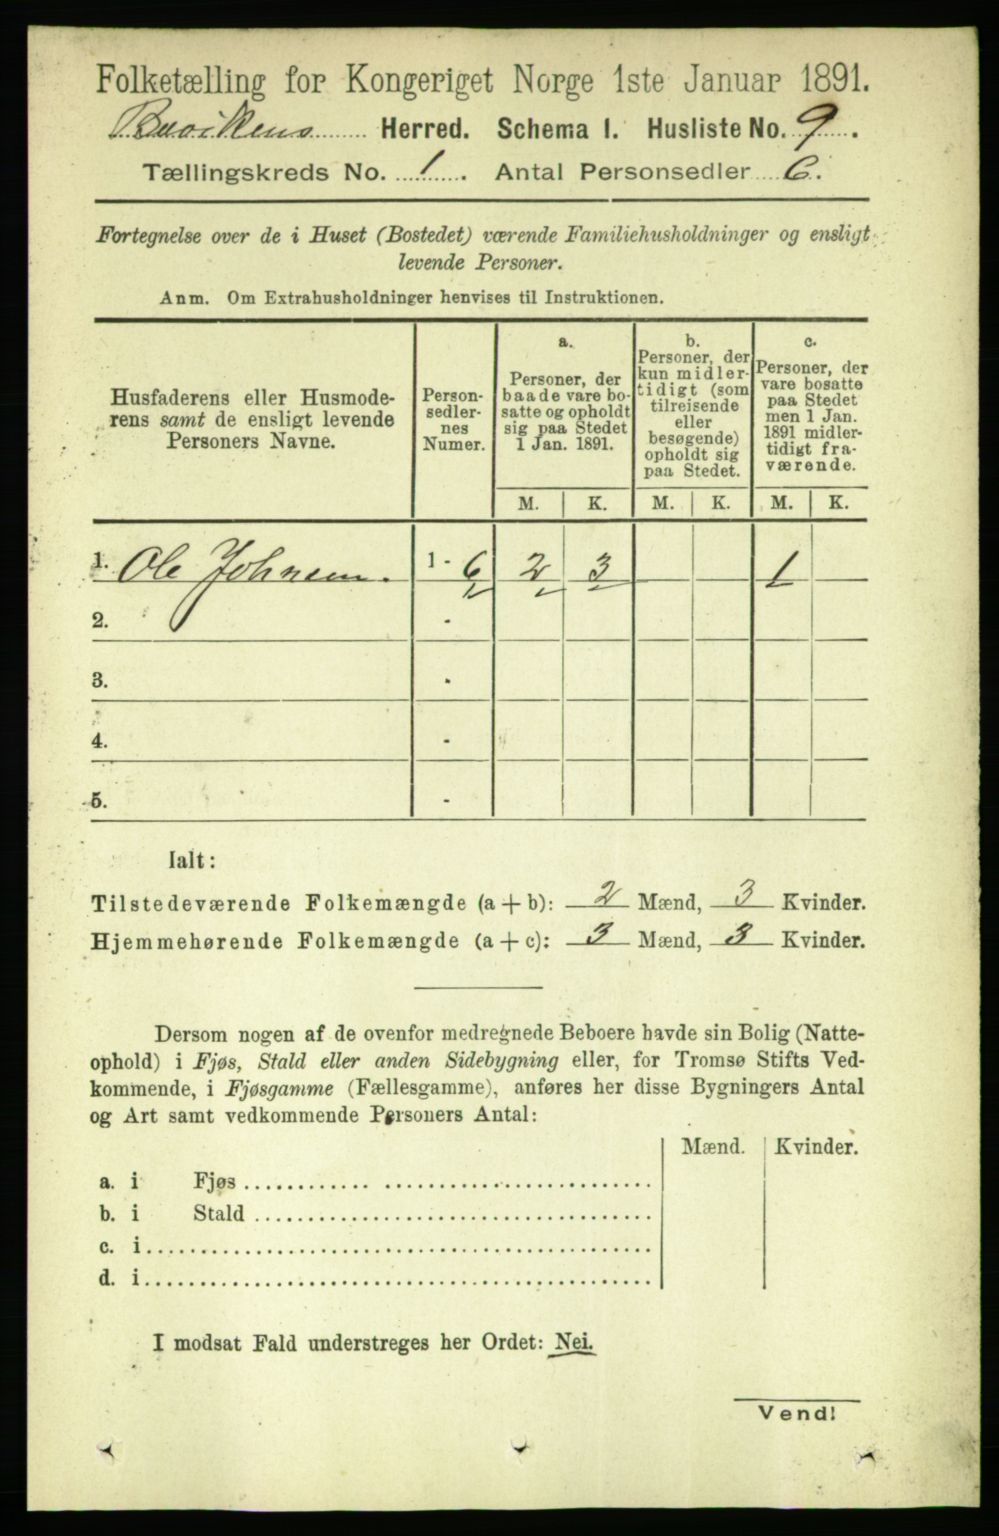 Folketælling for Kongeriget Norge 1ste Januar 1891.
Buvikens Herred. Schema I. Husliste No. 9.
Tællingskreds No. 1. Antal Personsedler 6.
Fortegnelse over de i Huset (Bostedet) værende Familiehusholdninger og ensligt
levende Personer.
Anm. Om Extrahusholdninger henvises til Instruktionen.
Husfaderens eller Husmode-
rens samt de ensligt levende
Personers Navne.
Person-
sedler-
nes
Numer.
a.
Personer, der
baade vare bo-
satte og opholdt
sig paa Stedet
1 Jan. 1891.
b.
Personer, der
kun midler-
tidigt (som
tilreisende
eller
besøgende)
opholdt sig
paa Stedet.
c.
Personer, der
vare bosatte
paa Stedet
men 1 Jan.
1891 midler-
tidigt fra-
værende.
M. K. M. K. M. K.
1. Ole Johnsen. 1 - 6 2 3 1
2. -
3. -
4. -
5. -
Ialt:
Tilstedeværende Folkemængde (a + b): 2 Mænd, 3 Kvinder.
Hjemmehørende Folkemængde (a + c): 3 Mænd, 3 Kvinder.
Dersom nogen af de ovenfor medregnede Beboere havde sin Bolig (Natte-
ophold) i Fjøs, Stald eller anden Sidebygning eller, for Tromsø Stifts Ved-
kommende, i Fjøsgamme (Fællesgamme), anføres her disse Bygningers Antal
og Art samt vedkommende Personers Antal:
Mænd. Kvinder.
a. i Fjøs
b. i Stald
c. i
d. i
I modsat Fald understreges her Ordet: Nei.
Vend!